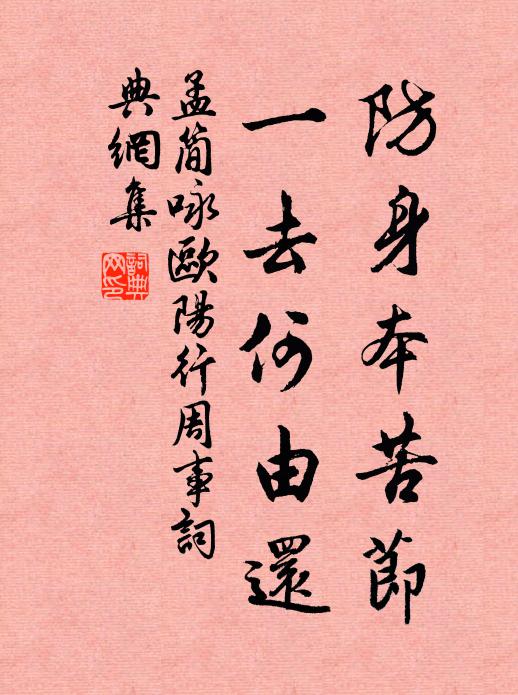 防身本苦節
一去何由還
孟簡咏歐陽行周事詞
典網集
詞典
网印